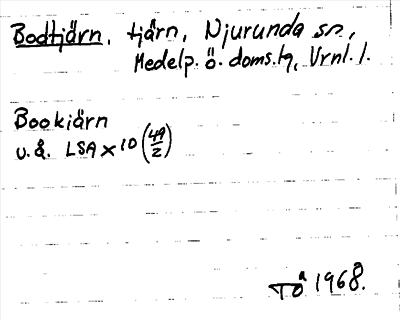 Bodtjärn, tjärn, Njurunda sn,
Medelp. ö. doms.tg, Vrnl. l.
Bookjärn
u.å. LSA X 10 (49/2)
Tö 1968.